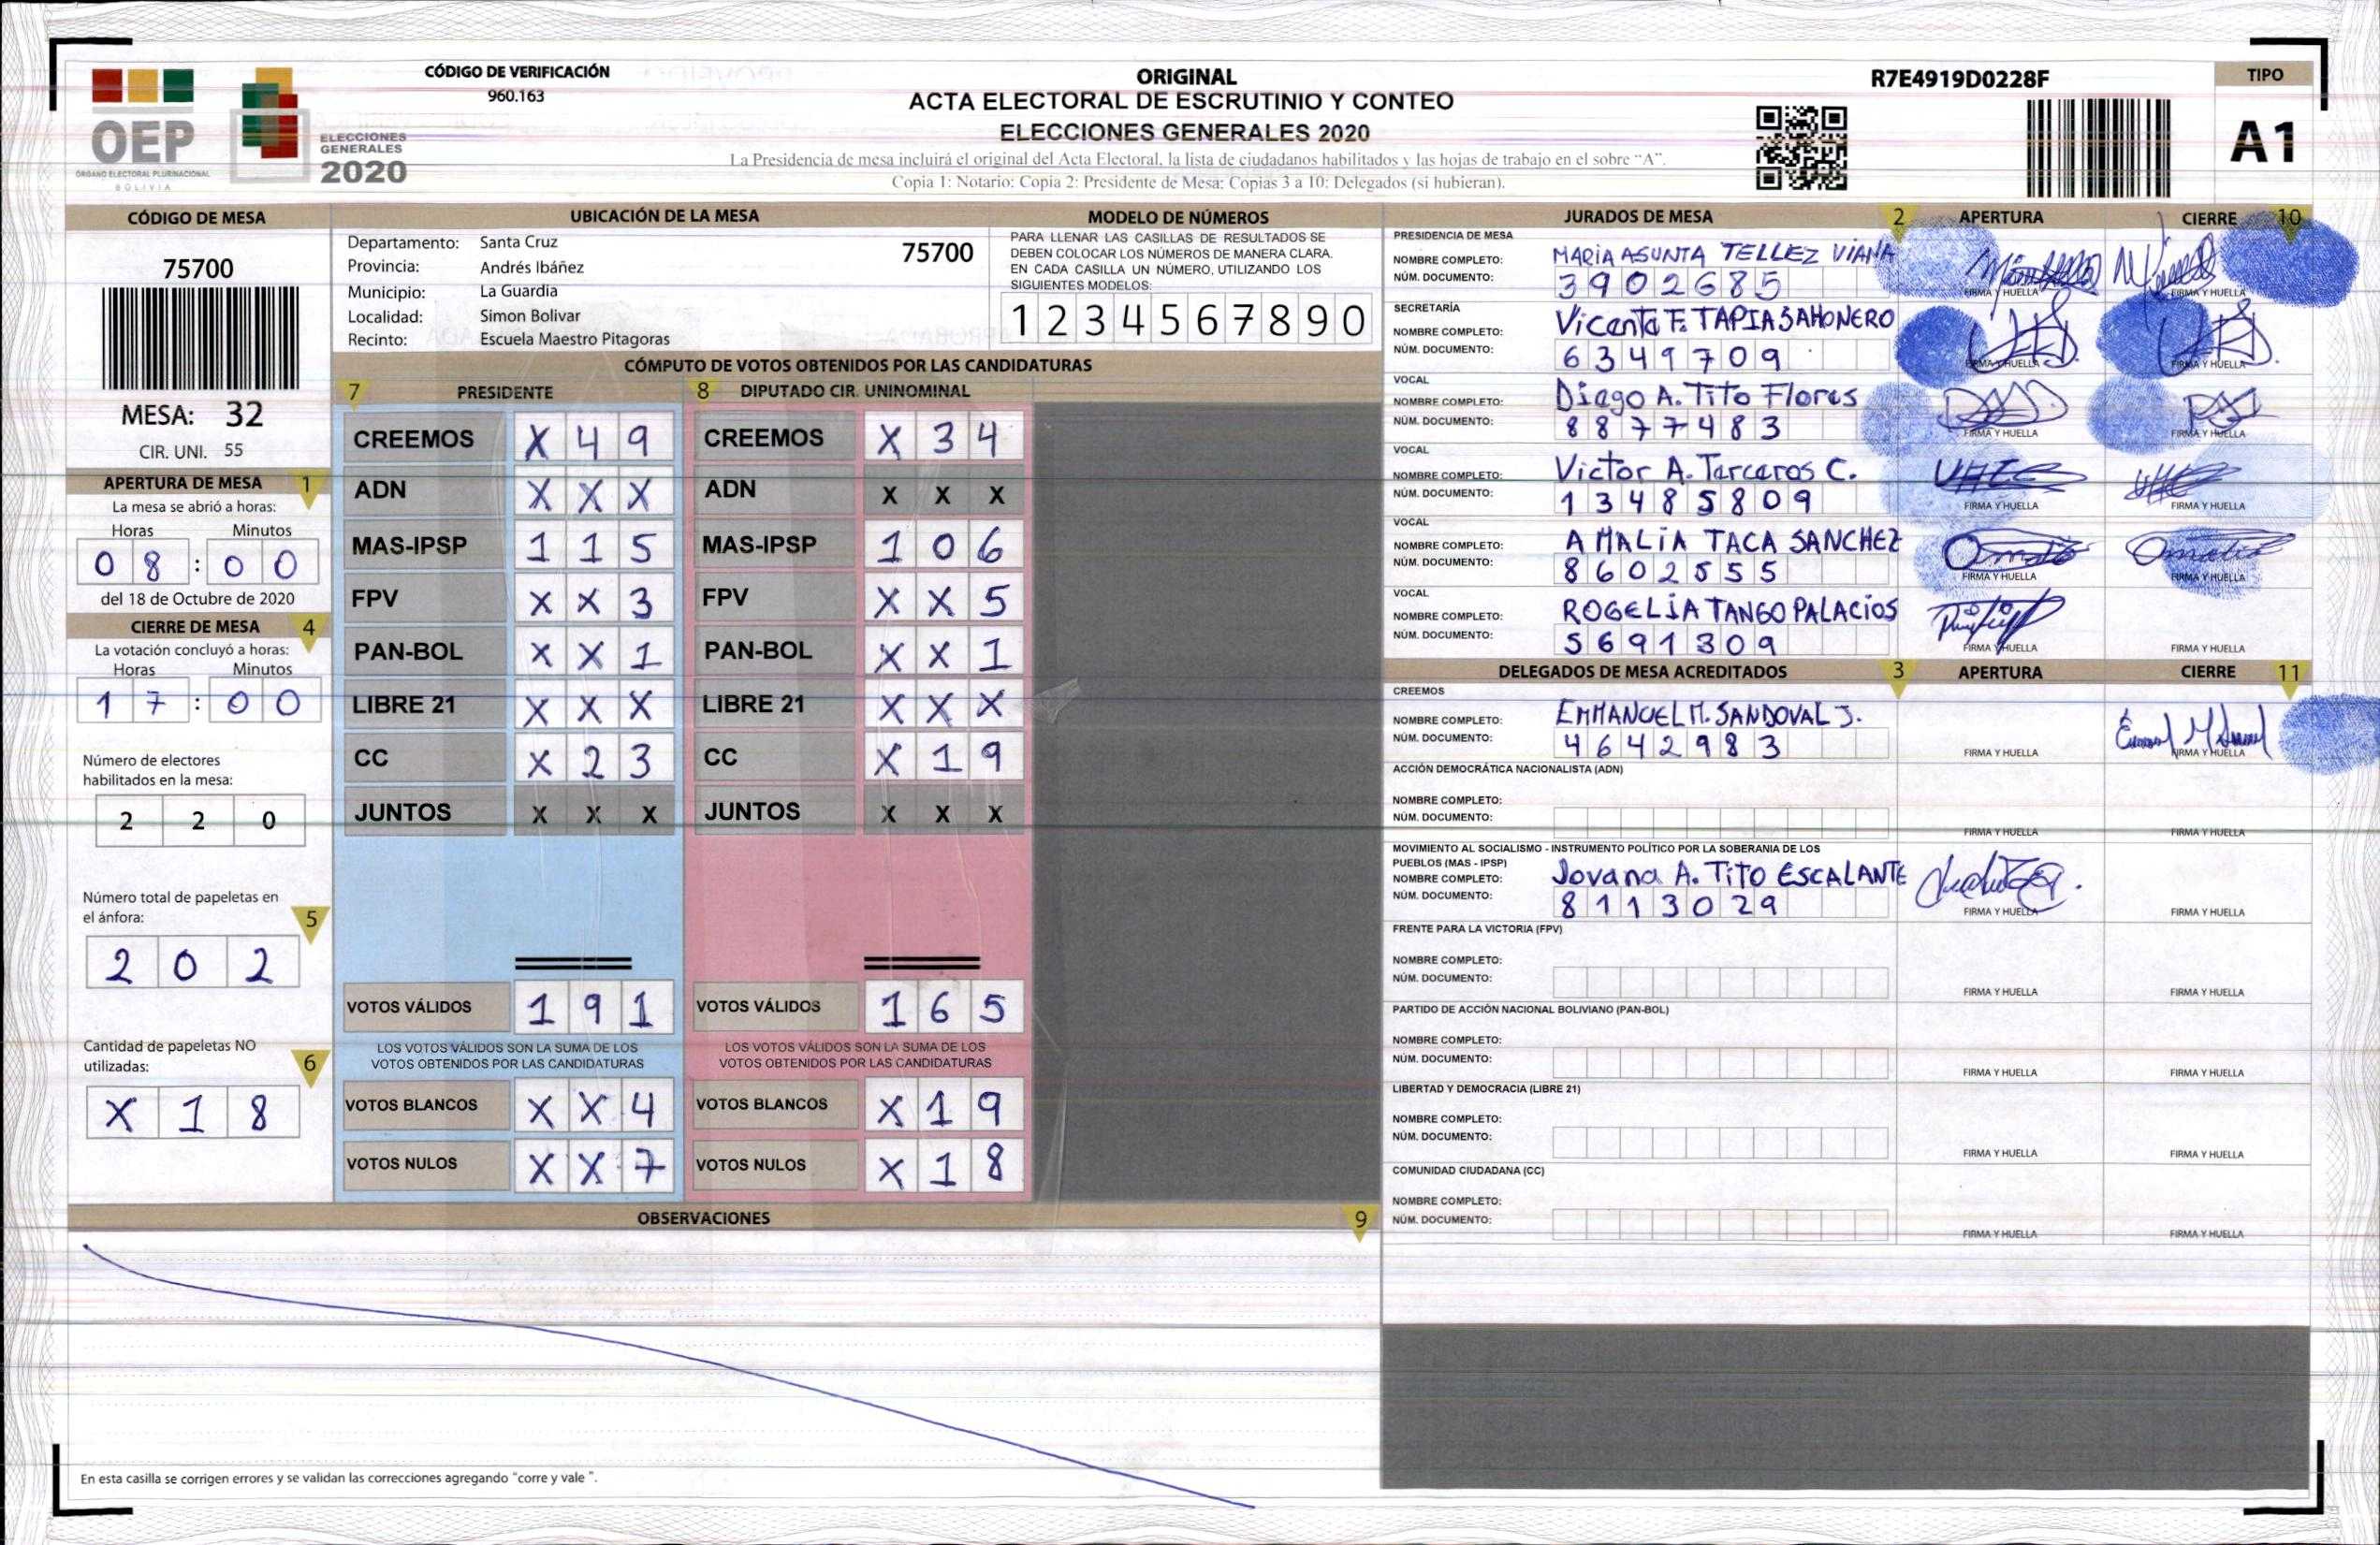 OEP
ÓRGANO ELECTORAL PLURINACIONAL
BOLIVIA
ELECCIONES
GENERALES
2020
CÓDIGO DE VERIFICACIÓN
960.163
ORIGINAL
ACTA ELECTORAL DE ESCRUTINIO Y CONTEO
ELECCIONES GENERALES 2020
La Presidencia de mesa incluirá el original del Acta Electoral, la lista de ciudadanos habilitados y las hojas de trabajo en el sobre "A".
Copia 1: Notario: Copia 2: Presidente de Mesa: Copias 3 a 10: Delegados (si hubieran).
R7E4919D0228F
TIPO
A1
CÓDIGO DE MESA
75700
MESA: 32
CIR. UNI. 55
APERTURA DE MESA 1
La mesa se abrió a horas:
Horas Minutos
0 8 : 0 0
del 18 de Octubre de 2020
CIERRE DE MESA 4
La votación concluyó a horas:
Horas Minutos
1 7 : 0 0
Número de electores
habilitados en la mesa:
2 2 0
Número total de papeletas en
el ánfora: 5
2 0 2
Cantidad de papeletas NO
utilizadas: 6
X 1 8
UBICACIÓN DE LA MESA
Departamento: Santa Cruz 75700
Provincia: Andrés Ibáñez
Municipio: La Guardia
Localidad: Simon Bolivar
Recinto: Escuela Maestro Pitagoras
MODELO DE NÚMEROS
PARA LLENAR LAS CASILLAS DE RESULTADOS SE
DEBEN COLOCAR LOS NÚMEROS DE MANERA CLARA.
EN CADA CASILLA UN NÚMERO, UTILIZANDO LOS
SIGUIENTES MODELOS:
1 2 3 4 5 6 7 8 9 0
CÓMPUTO DE VOTOS OBTENIDOS POR LAS CANDIDATURAS
7 PRESIDENTE 8 DIPUTADO CIR. UNINOMINAL
CREEMOS X 4 9 CREEMOS X 3 4
ADN X X X ADN X X X
MAS-IPSP 1 1 5 MAS-IPSP 1 0 6
FPV X X 3 FPV X X 5
PAN-BOL X X 1 PAN-BOL X X 1
LIBRE 21 X X X LIBRE 21 X X X
CC X 2 3 CC X 1 9
JUNTOS X X X JUNTOS X X X
VOTOS VÁLIDOS 1 9 1 VOTOS VÁLIDOS 1 6 5
LOS VOTOS VÁLIDOS SON LA SUMA DE LOS LOS VOTOS VÁLIDOS SON LA SUMA DE LOS
VOTOS OBTENIDOS POR LAS CANDIDATURAS VOTOS OBTENIDOS POR LAS CANDIDATURAS
VOTOS BLANCOS X X 4 VOTOS BLANCOS X 1 9
VOTOS NULOS X X 7 VOTOS NULOS X 1 8
OBSERVACIONES 9
En esta casilla se corrigen errores y se validan las correcciones agregando "corre y vale ".
JURADOS DE MESA 2 APERTURA CIERRE 10
PRESIDENCIA DE MESA
NOMBRE COMPLETO: MARIA ASUNTA TELLEZ VIANA
NÚM. DOCUMENTO: 3902685
FIRMA Y HUELLA FIRMA Y HUELLA
SECRETARÍA
NOMBRE COMPLETO: Vicenta F. TAPIA SAHONERO
NÚM. DOCUMENTO: 6349709
FIRMA Y HUELLA FIRMA Y HUELLA
VOCAL
NOMBRE COMPLETO: Diego A. Tito Flores
NÚM. DOCUMENTO: 8877483
FIRMA Y HUELLA FIRMA Y HUELLA
VOCAL
NOMBRE COMPLETO: Victor A. Terceros C.
NÚM. DOCUMENTO: 13485809
FIRMA Y HUELLA FIRMA Y HUELLA
VOCAL
NOMBRE COMPLETO: AMALIA TACA SANCHEZ
NÚM. DOCUMENTO: 8602555
FIRMA Y HUELLA FIRMA Y HUELLA
VOCAL
NOMBRE COMPLETO: ROGELIA TANGO PALACIOS
NÚM. DOCUMENTO: 5691309
FIRMA Y HUELLA FIRMA Y HUELLA
DELEGADOS DE MESA ACREDITADOS 3 APERTURA CIERRE 11
CREEMOS
NOMBRE COMPLETO: EMMANUEL M. SANDOVAL J.
NÚM. DOCUMENTO: 4642983
FIRMA Y HUELLA FIRMA Y HUELLA
ACCIÓN DEMOCRÁTICA NACIONALISTA (ADN)
NOMBRE COMPLETO:
NÚM. DOCUMENTO:
FIRMA Y HUELLA FIRMA Y HUELLA
MOVIMIENTO AL SOCIALISMO - INSTRUMENTO POLÍTICO POR LA SOBERANIA DE LOS
PUEBLOS (MAS - IPSP)
NOMBRE COMPLETO: Jovana A. TITO ESCALANTE
NÚM. DOCUMENTO: 8113029
FIRMA Y HUELLA FIRMA Y HUELLA
FRENTE PARA LA VICTORIA (FPV)
NOMBRE COMPLETO:
NÚM. DOCUMENTO:
FIRMA Y HUELLA FIRMA Y HUELLA
PARTIDO DE ACCIÓN NACIONAL BOLIVIANO (PAN-BOL)
NOMBRE COMPLETO:
NÚM. DOCUMENTO:
FIRMA Y HUELLA FIRMA Y HUELLA
LIBERTAD Y DEMOCRACIA (LIBRE 21)
NOMBRE COMPLETO:
NÚM. DOCUMENTO:
FIRMA Y HUELLA FIRMA Y HUELLA
COMUNIDAD CIUDADANA (CC)
NOMBRE COMPLETO:
NÚM. DOCUMENTO:
FIRMA Y HUELLA FIRMA Y HUELLA